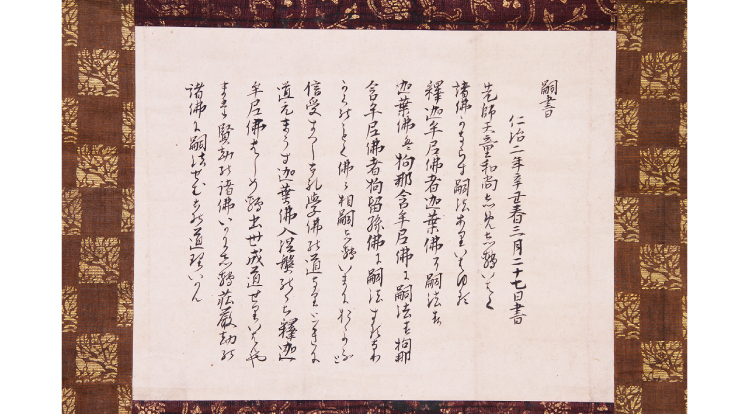 嗣書
仁治二年辛丑春三月二十七日書
先師天童和尚志めし轉いはく
諸佛かならす嗣法ありいはゆる
釋迦牟尼佛者迦葉佛に嗣法す
迦葉佛は拘那含牟尼佛に嗣法す拘那
含牟尼佛者拘留孫佛に嗣法するなり
かくのことく佛々相嗣志轉いまにいたると
信受すへしこれ學佛の道なりときに
道元まうす迦葉佛入涅槃のち釋迦
牟尼佛はしめ轉出世成道せりいはんや
また賢劫の諸佛いかにし轉荘嚴劫の
諸佛に嗣法せむこの道理いかん